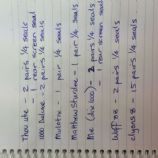 Thou ute - 2 pairs 1/4 seals
- 1 rear screen seal
1000 - 2 pairs 1/4 seals
- 1 rear screen seal
- 1 pair 1/4 seals
Matthew - 1 pair 1/4 seals
Me (div 1000) - 2 pairs 1/4 seals
- 1 rear screen seal
- 2 pairs 1/4 seals
- 15 pairs 1/4 seals